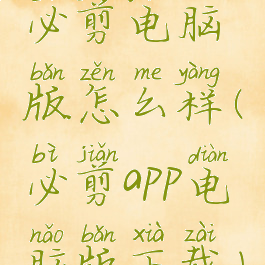 必剪电脑
bǎn zěn me yàng
版怎么样(
bì jiǎn diàn
必剪app电
nǎo bǎn xià zài
脑版下载)